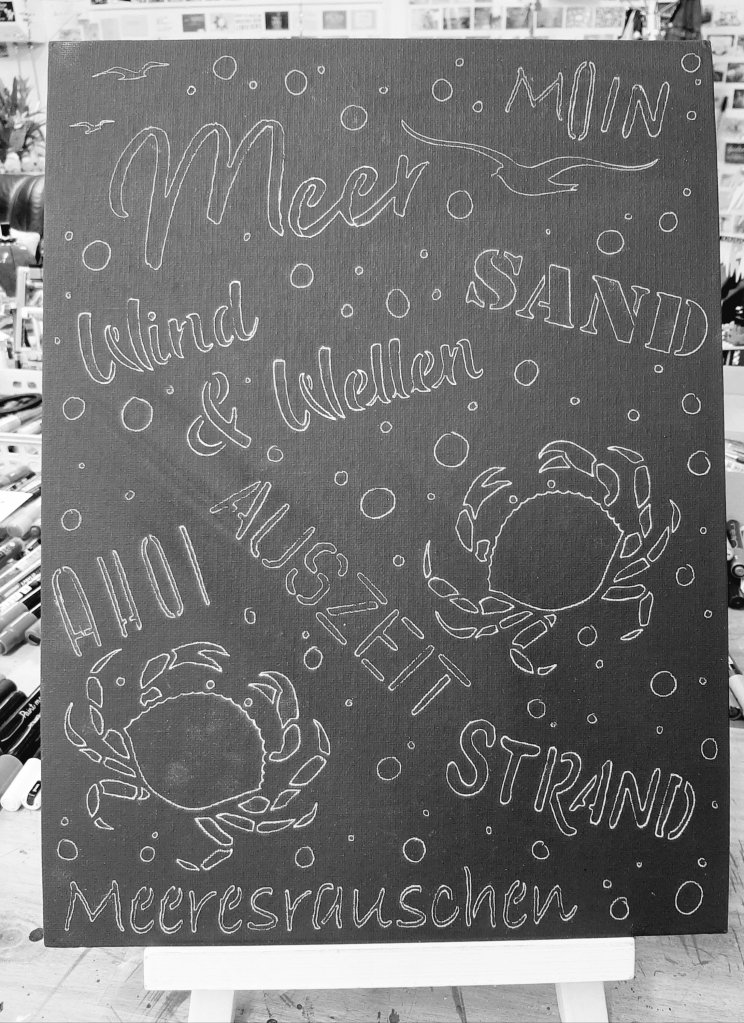 MOIN
Meer
SAND
Wind
& Wellen
AUSZEIT
AHOI
STRAND
Meeresrauschen